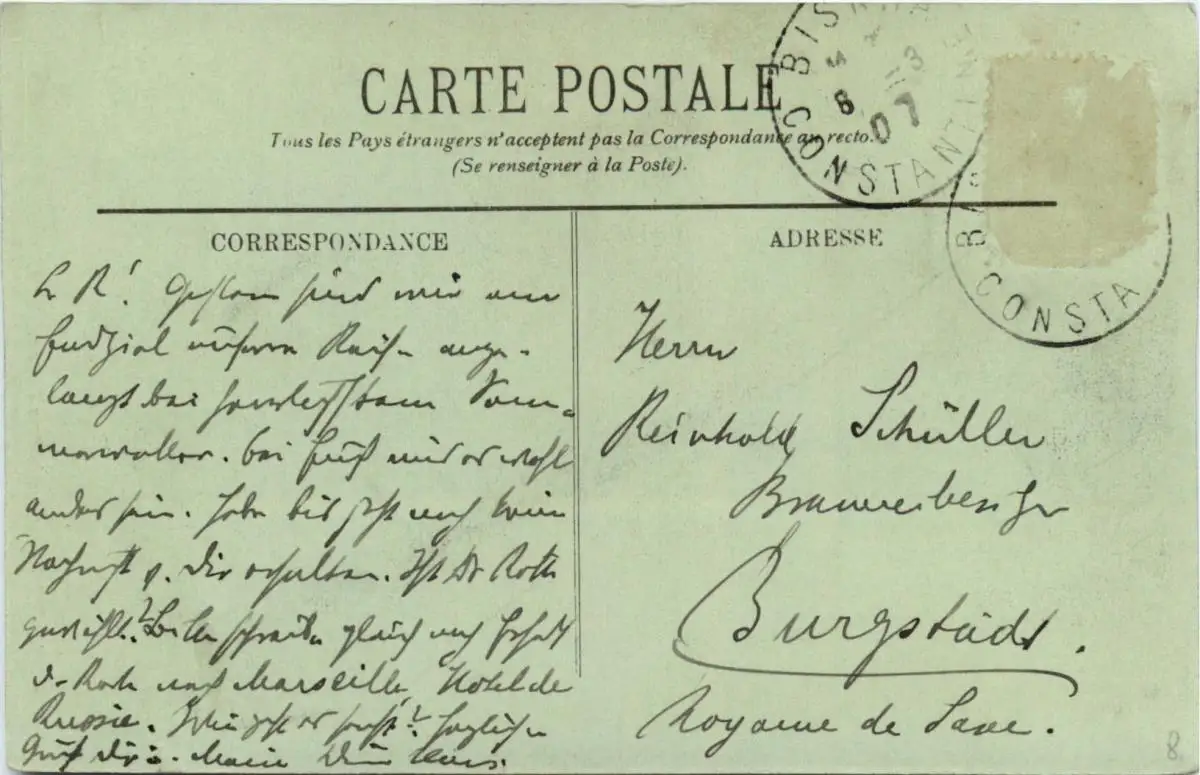 CARTE POSTALE
Tous les Pays étrangers n'acceptent pas la Correspondance au recto.
(Se renseigner à la Poste).
BIS
CONSTANTINE
07
CONSTA
CORRESPONDANCE
L R! Gestern sind wir am
Endziel unserer Reise ange-
langt bei herrlichstem Som-
merwetter. Bei Euch wird es wohl
anders sein. Habe bis jetzt noch keine
Nachricht v. Dir erhalten. Ist Dr Roth
gewählt? Bitte schreibe gleich nach Erhalt
d. Karte nach Marseille, Hotel de
Russie. Wie geht es sonst? Herzlichen
Gruß Dir u. Marie Dein
ADRESSE
Herrn
Reinhold Schüller
Brauereibesitzer
Burgstädt.
Royaume de Saxe.
8